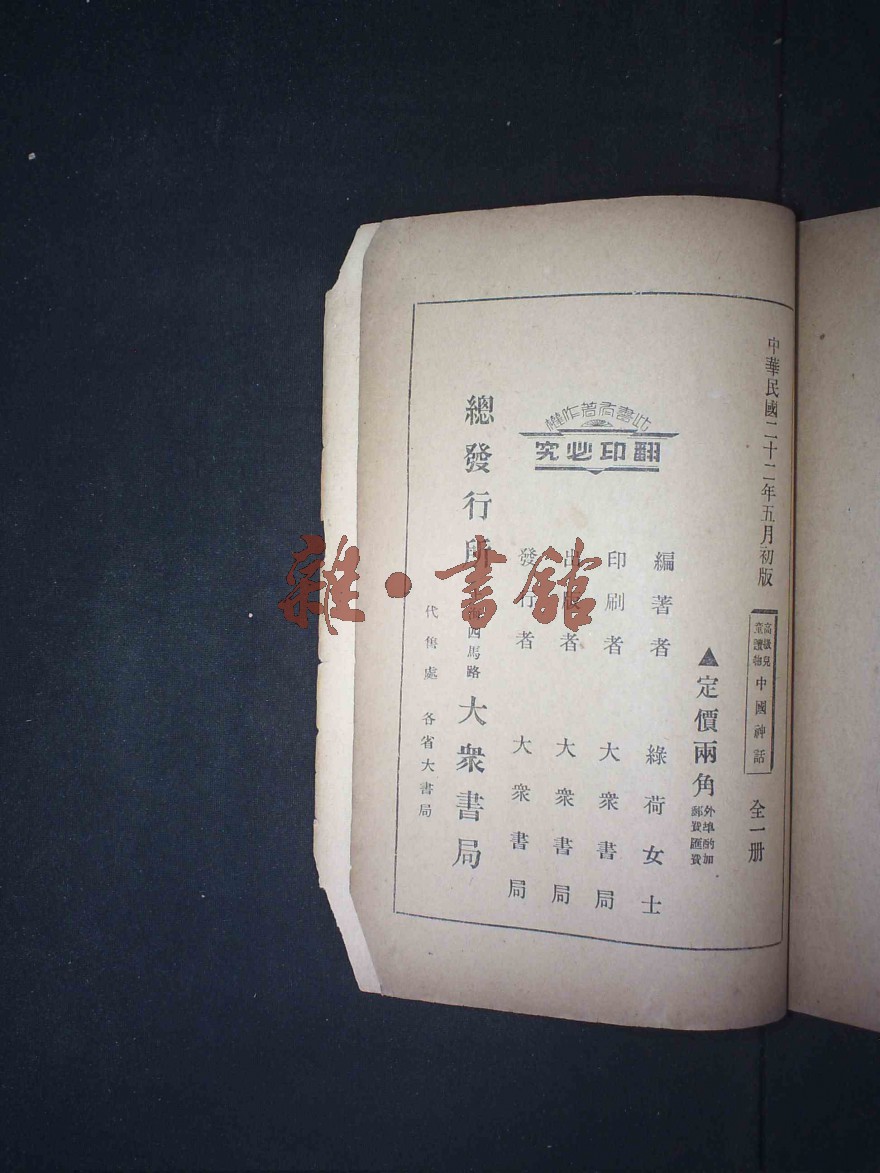 中華民國二十二年五月初版
高級兒童讀物 中國神話 全一册
▲定價兩角 外埠酌加郵費匯費
編著者 綠荷女士
印刷者 大衆書局
出版者 大衆書局
發行者 大衆書局
此書有著作權
翻印必究
總發行所 四馬路 大衆書局
代售處 各省大書局
雜·書館